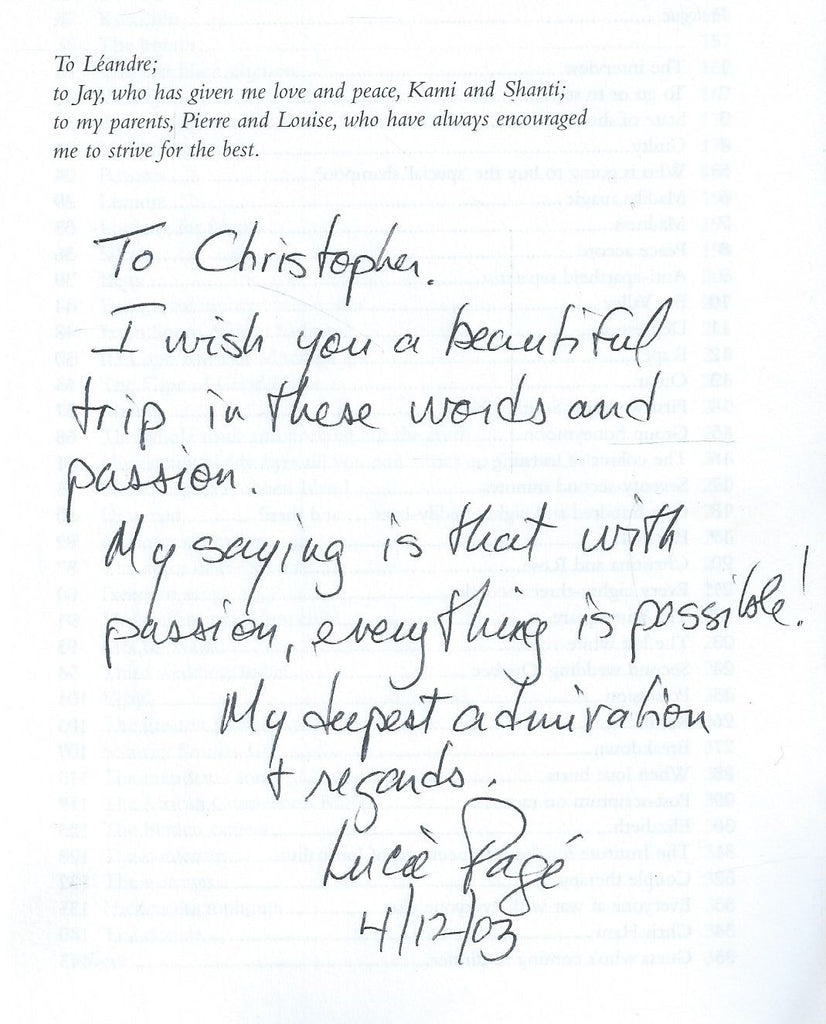 To Léandre;
to Jay, who has given me love and peace, Kami and Shanti;
to my parents, Pierre and Louise, who have always encouraged
me to strive for the best.
To Christopher.
I wish you a beautiful
trip in these words and
passion
My saying is that with
passion, everything is possible!
My deepest admiration
+ regards.
Lucie Pagé
4/12/03